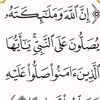 إِنَّ ٱللَّهَ وَمَلَٰٓئِكَتَهُۥ
يُصَلُّونَ عَلَى ٱلنَّبِيِّ ۚ يَٰٓأَيُّهَا
ٱلَّذِينَ ءَامَنُوا۟ صَلُّوا۟ عَلَيْهِ